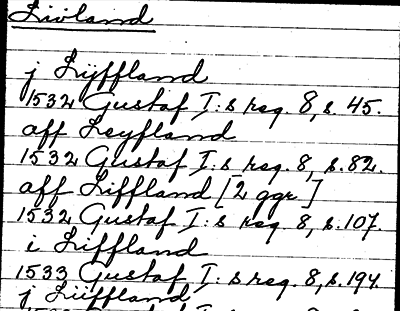 Livland
j Lÿffland
1532 Gustaf I:s reg. 8, s. 45.
aff Leyfland
1532 Gustaf I:s reg. 8, s. 82.
aff Liffland [2 ggr]
1532 Gustaf I:s reg. 8, s. 107.
i Liffland
1533 Gustaf I:s reg. 8, s. 194.
j Lüffland